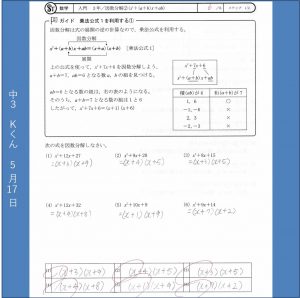 中3 Kくん 5月17日
数学
入門 3年/因数分解②(x²+(a+b)x+ab)
ガイド 乗法公式1を利用する①
因数分解は式の展開の逆の計算なので，乗法公式を利用する。
因数分解
x²+(a+b)x+ab=(x+a)(x+b) [乗法公式1]
展開
上の公式を使って，x²+7x+6を因数分解しよう。
a+b=7，ab=6となる数a，bの組を見つける。
x²+7x+6
x²+(a+b)x+ab
ab=6となる数の組は，右の表のようになる。
そのうち，a+b=7となる数の組は1と6
したがって，x²+7x+6=(x+1)(x+6)
積(ab)が6 和(a+b)が7
1，6 ○
-1，-6 ×
2，3 ×
-2，-3 ×
次の式を因数分解しなさい。
(1) x²+12x+27 (2) x²+9x+20 (3) x²+8x+15
=(x+3)(x+9) =(x+4)(x+5) =(x+3)(x+5)
(4) x²+12x+32 (5) x²+10x+9 (6) x²+9x+14
=(x+4)(x+8) =(x+1)(x+9) =(x+7)(x+2)
(x+3)(x+9) (x+4)(x+5) (x+3)(x+5)
(x+4)(x+8) (x+1)(x+9) (x+7)(x+2)